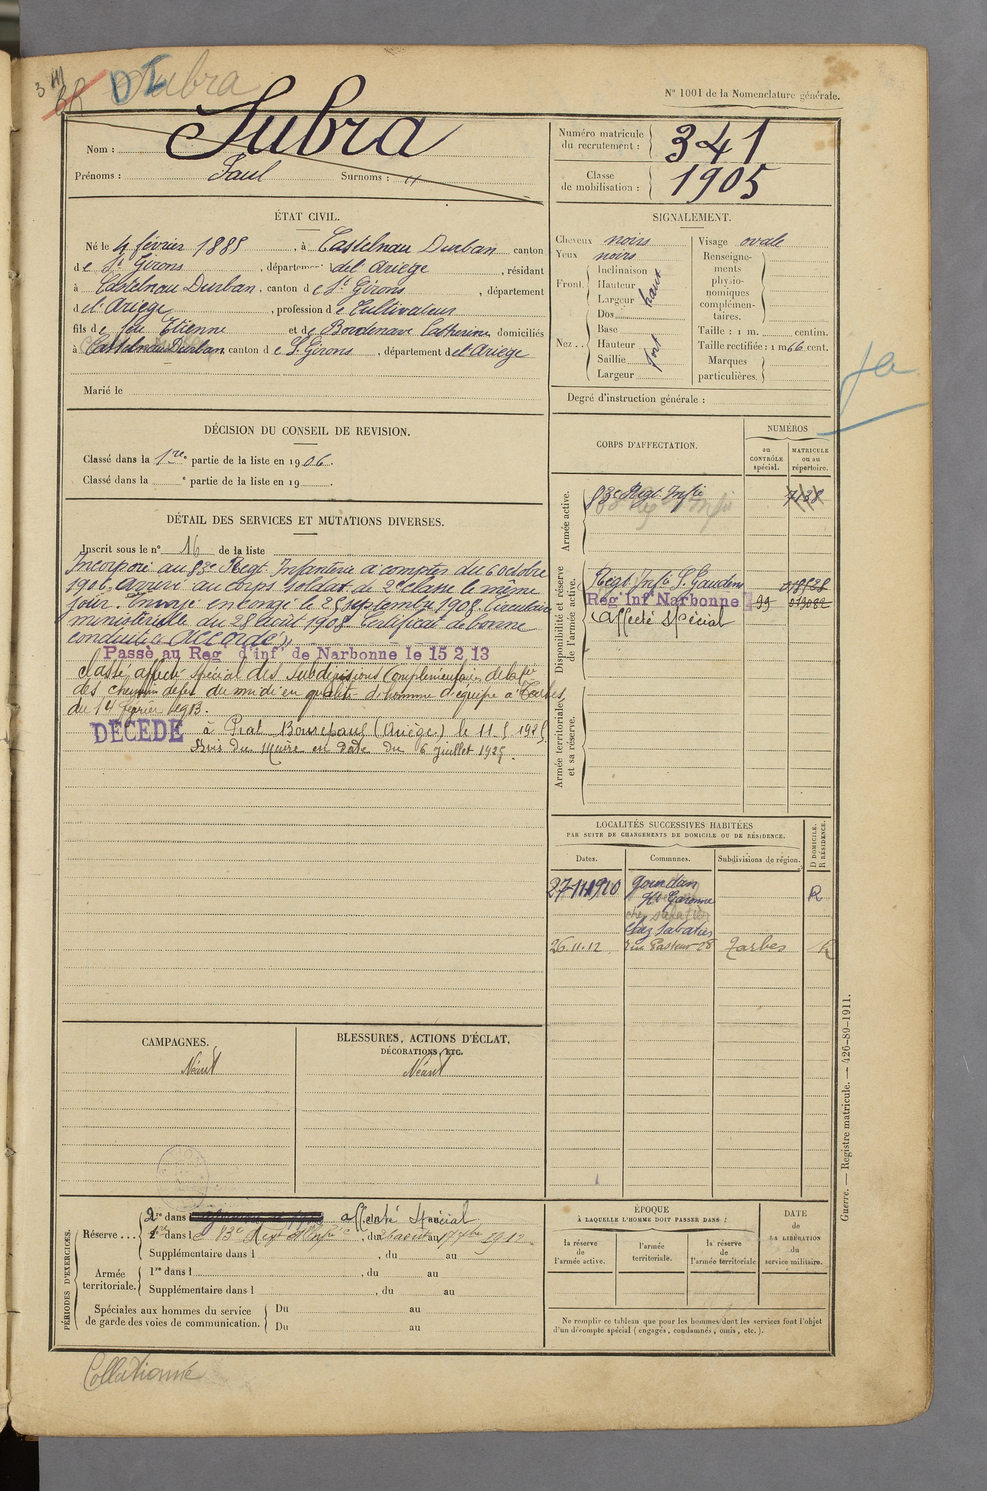 Subra
N° 1001 de la Nomenclature générale.
Nom : Subra
Prénoms : Paul Surnoms : "
Numéro matricule du recrutement : 341
Classe de mobilisation : 1905
ÉTAT CIVIL.
Né le 4 février 1885, à Castelnau Durban canton
de St Girons, département de l'Ariège, résidant
à Castelnau Durban, canton de St Girons, département
d l'Ariège, profession de Cultivateur
fils de feu Etienne et de Bordenave Catherine domiciliés
à Castelnau Durban canton de St Girons, département de l'Ariège
Marié le
SIGNALEMENT.
Cheveux noirs
Yeux noirs
Front. Inclinaison
Hauteur haut
Largeur
Nez. Dos
Base
Hauteur fort
Saillie
Largeur
Visage ovale
Renseigne-
ments
physio-
nomiques
complémen-
taires.
Taille : 1 m. centim.
Taille rectifiée : 1 m 66 cent.
Marques
particulières.
Degré d'instruction générale :
DÉCISION DU CONSEIL DE REVISION.
Classé dans la 1re partie de la liste en 1906.
Classé dans la e partie de la liste en 19
DÉTAIL DES SERVICES ET MUTATIONS DIVERSES.
Inscrit sous le n° 16 de la liste
Incorporé au 83e Regt Infanterie à compter du 6 octobre
1906. Arrivé au corps soldat de 2e classe le même
jour. Envoyé en congé le 25 septembre 1908. Circulaire
ministérielle du 28 Août 1908 Certificat de bonne
conduite "Accordé"
Passé au Reg' d'inf' de Narbonne le 15 2 13
Classé affecté spécial des subdivisions complémentaires de la Cie
des chemin de fer du midi en qualité d'homme d'équipe à Tarbes,
du 14 février 1913.
DÉCÉDÉ à Prat Bonrepaux (Ariège) le 11 5 1925.
Avis du Maire en date du 6 juillet 1925.
CORPS D'AFFECTATION.
NUMÉROS
au CONTRÔLE spécial.
MATRICULE ou au répertoire.
Armée active.
83e Regt Infie 7138
Disponibilité et réserve de l'armée active.
Regt Infie St Gaudens
Reg' Inf' Narbonne 99
Affecté Spécial
Armée territoriale et sa réserve.
LOCALITÉS SUCCESSIVES HABITÉES
PAR SUITE DE CHANGEMENTS DE DOMICILE OU DE RÉSIDENCE.
Dates. Communes. Subdivisions de région. D DOMICILE. R RÉSIDENCE.
27-11-1910 Gourdan R
Hte Garonne
chez Sabatier
26.11.12 rue Pasteur 28 Tarbes R
CAMPAGNES.
Néant
BLESSURES, ACTIONS D'ÉCLAT,
DÉCORATIONS, ETC.
Néant
PÉRIODES D'EXERCICES.
Réserve . . . 2re dans affecté Spécial
1re dans le 83e Regt d'Infie, du août au 7bre 1912.
Supplémentaire dans l , du au
Armée territoriale. 1re dans l , du au
Supplémentaire dans l , du au
Spéciales aux hommes du service
de garde des voies de communication. Du au
Du au
ÉPOQUE
À LAQUELLE L'HOMME DOIT PASSER DANS :
la réserve de l'armée active.
l'armée territoriale.
la réserve de l'armée territoriale
DATE de LA LIBÉRATION du service militaire.
Ne remplir ce tableau que pour les hommes dont les services font l'objet
d'un décompte spécial (engagés, condamnés, omis, etc.).
Guerre. — Registre matricule. — 426-89-1911.
Collationné